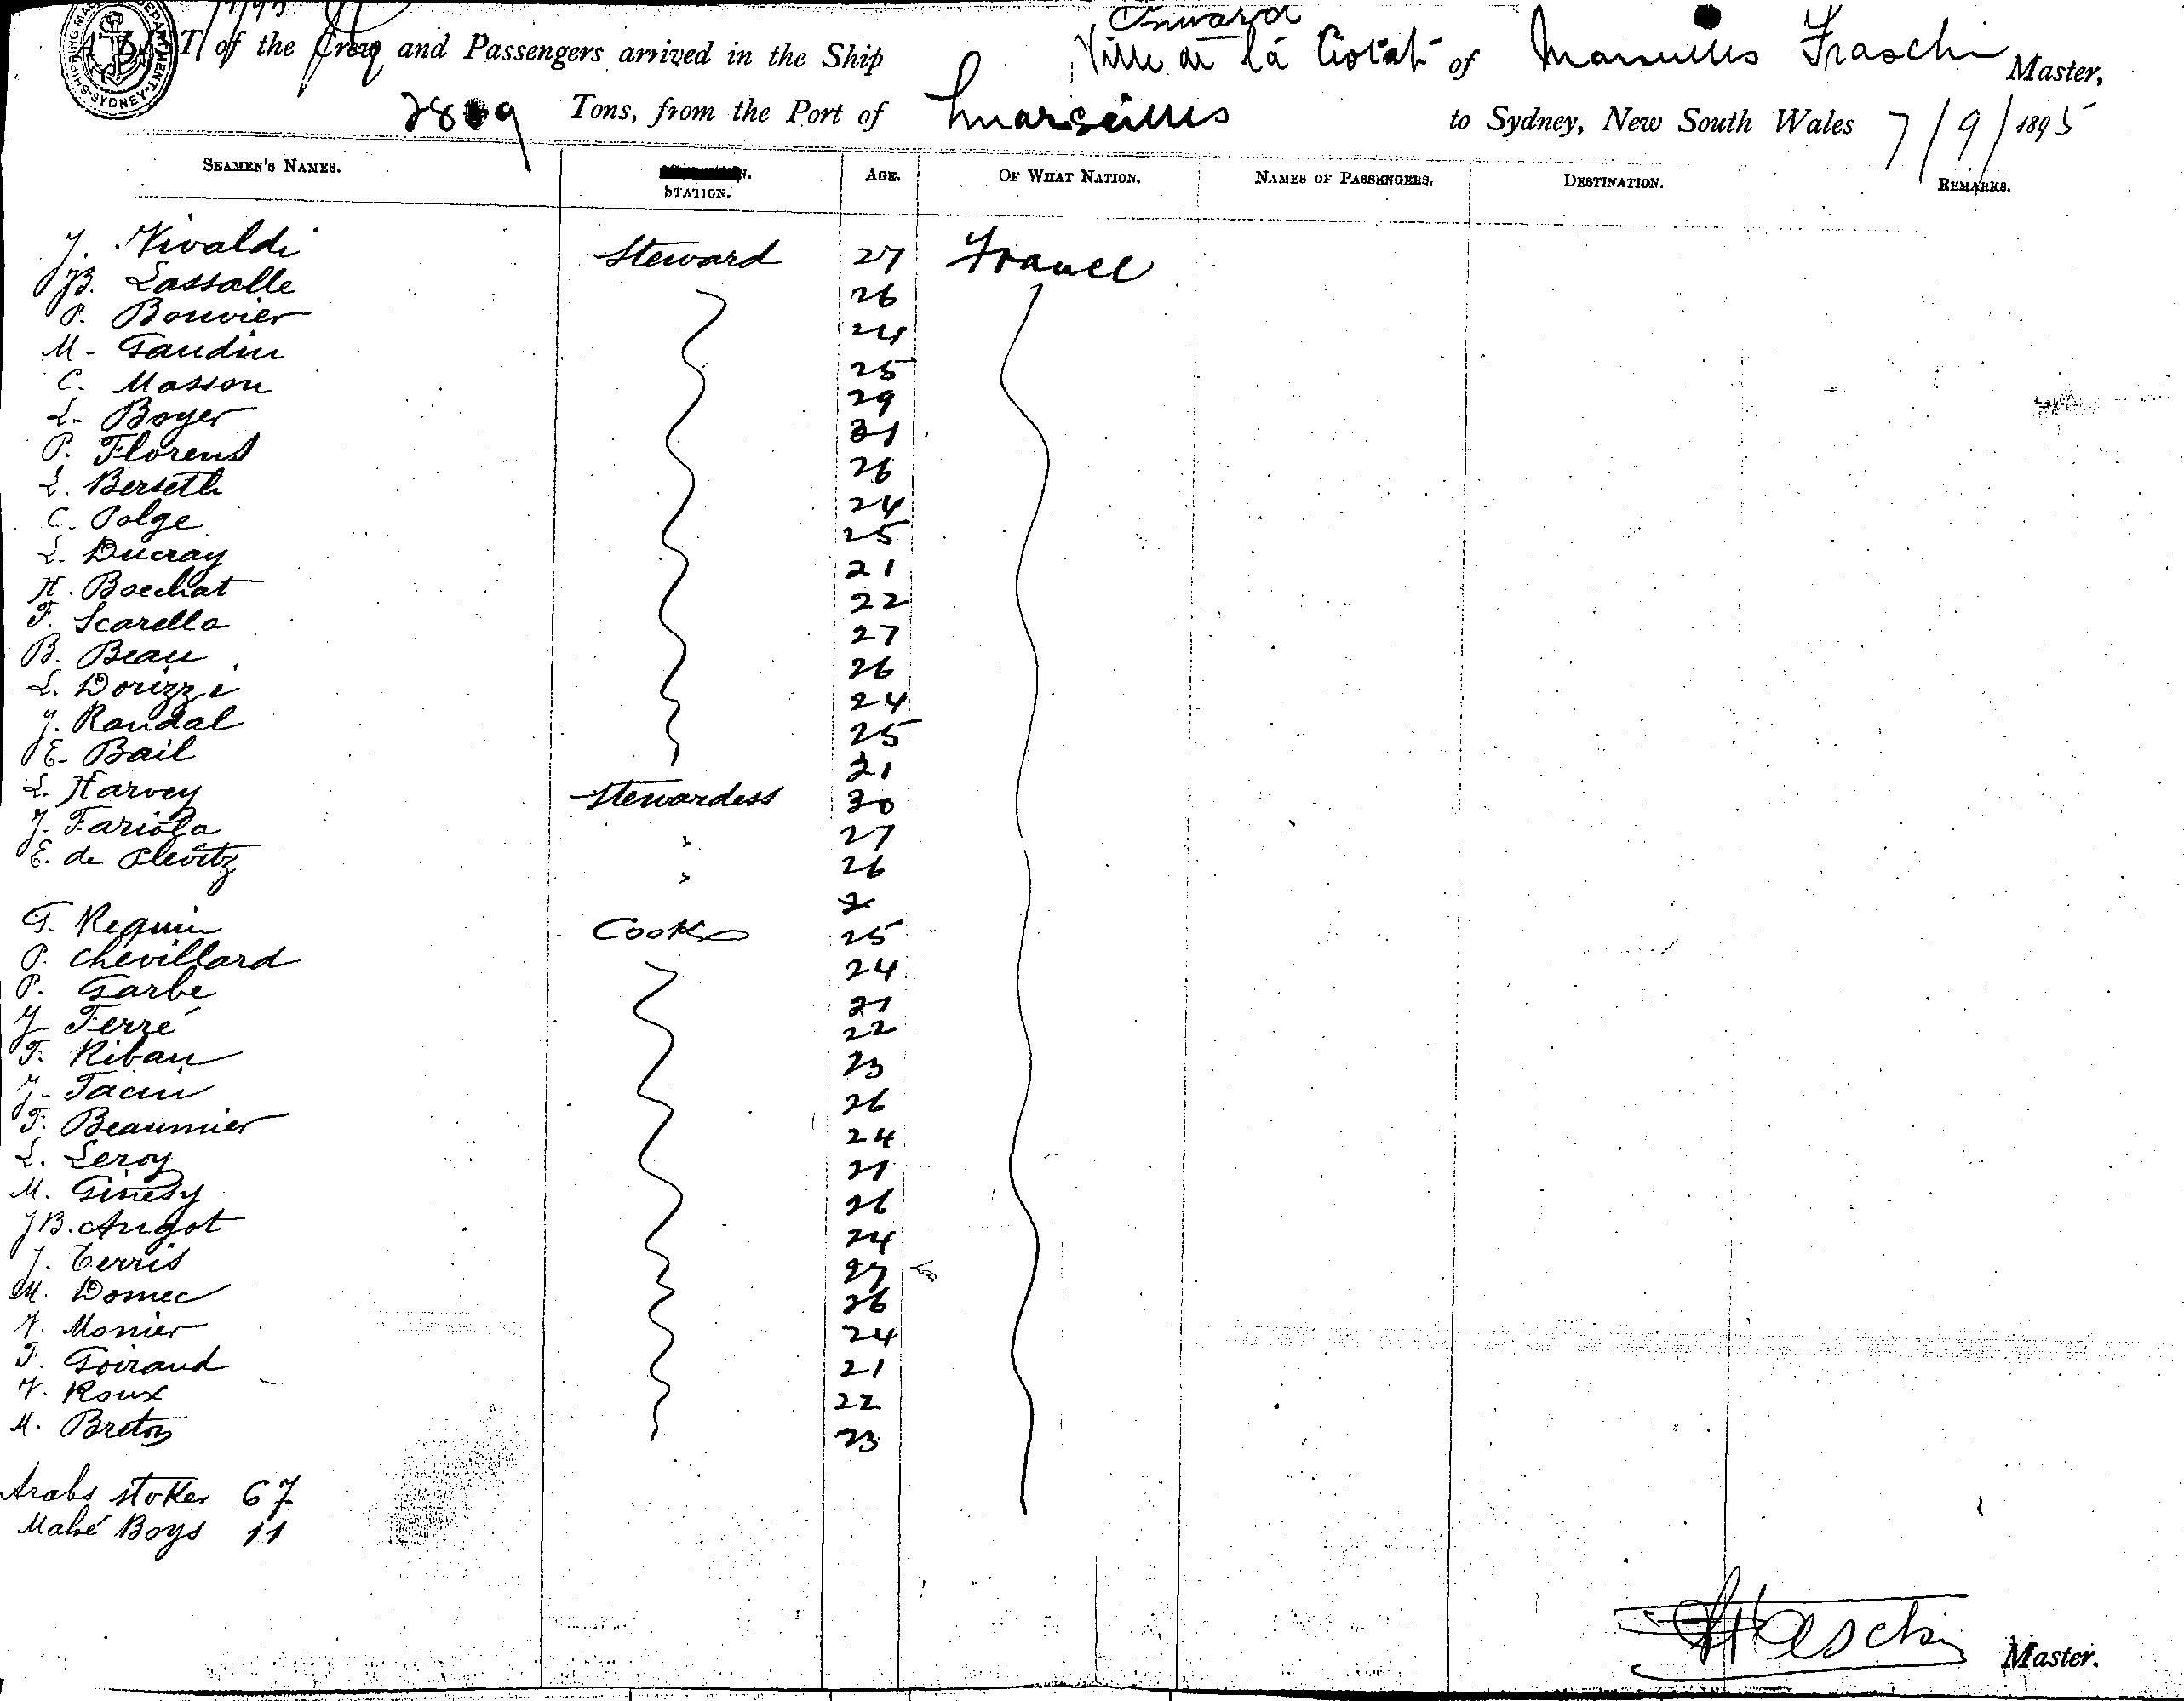 Inward
A LIST of the Crew and Passengers arrived in the Ship Ville de la Ciotat of Marseilles Fraschi Master,
Tons, from the Port of Marseilles to Sydney, New South Wales 7/9/1895
SEAMEN'S NAMES. STATION. AGE. OF WHAT NATION. NAMES OF PASSENGERS. DESTINATION. REMARKS.
J. Vivaldi Steward 27 France
JB. Lassalle 26
P. Bouvier 24
M. Gaudin 25
C. Masson 29
L. Boyer 31
P. Florens 26
L. Berseth 24
C. Polge 25
L. Ducray 21
H. Boechat 22
F. Scarella 27
B. Beau 26
L. Dorizzi 24
J. Randal 25
E. Bail 21
L. Harvey Stewardess 30
J. Fariola " 27
E. de Plevitz " 26
G. Requin Cook 25
P. Chevillard 24
P. Garbe 21
J Ferré 22
F. Riban 23
J. Tacin 26
F. Beaumier 24
L. Leroy 21
M. Ginesy 26
JB. Angot 24
J. Terris 27
M. Domec 26
F. Monier 24
F. Goiraud 21
F. Roux 22
M. Breton 23
Arabs stoker 67
Mahé Boys 11
Fraschi Master.